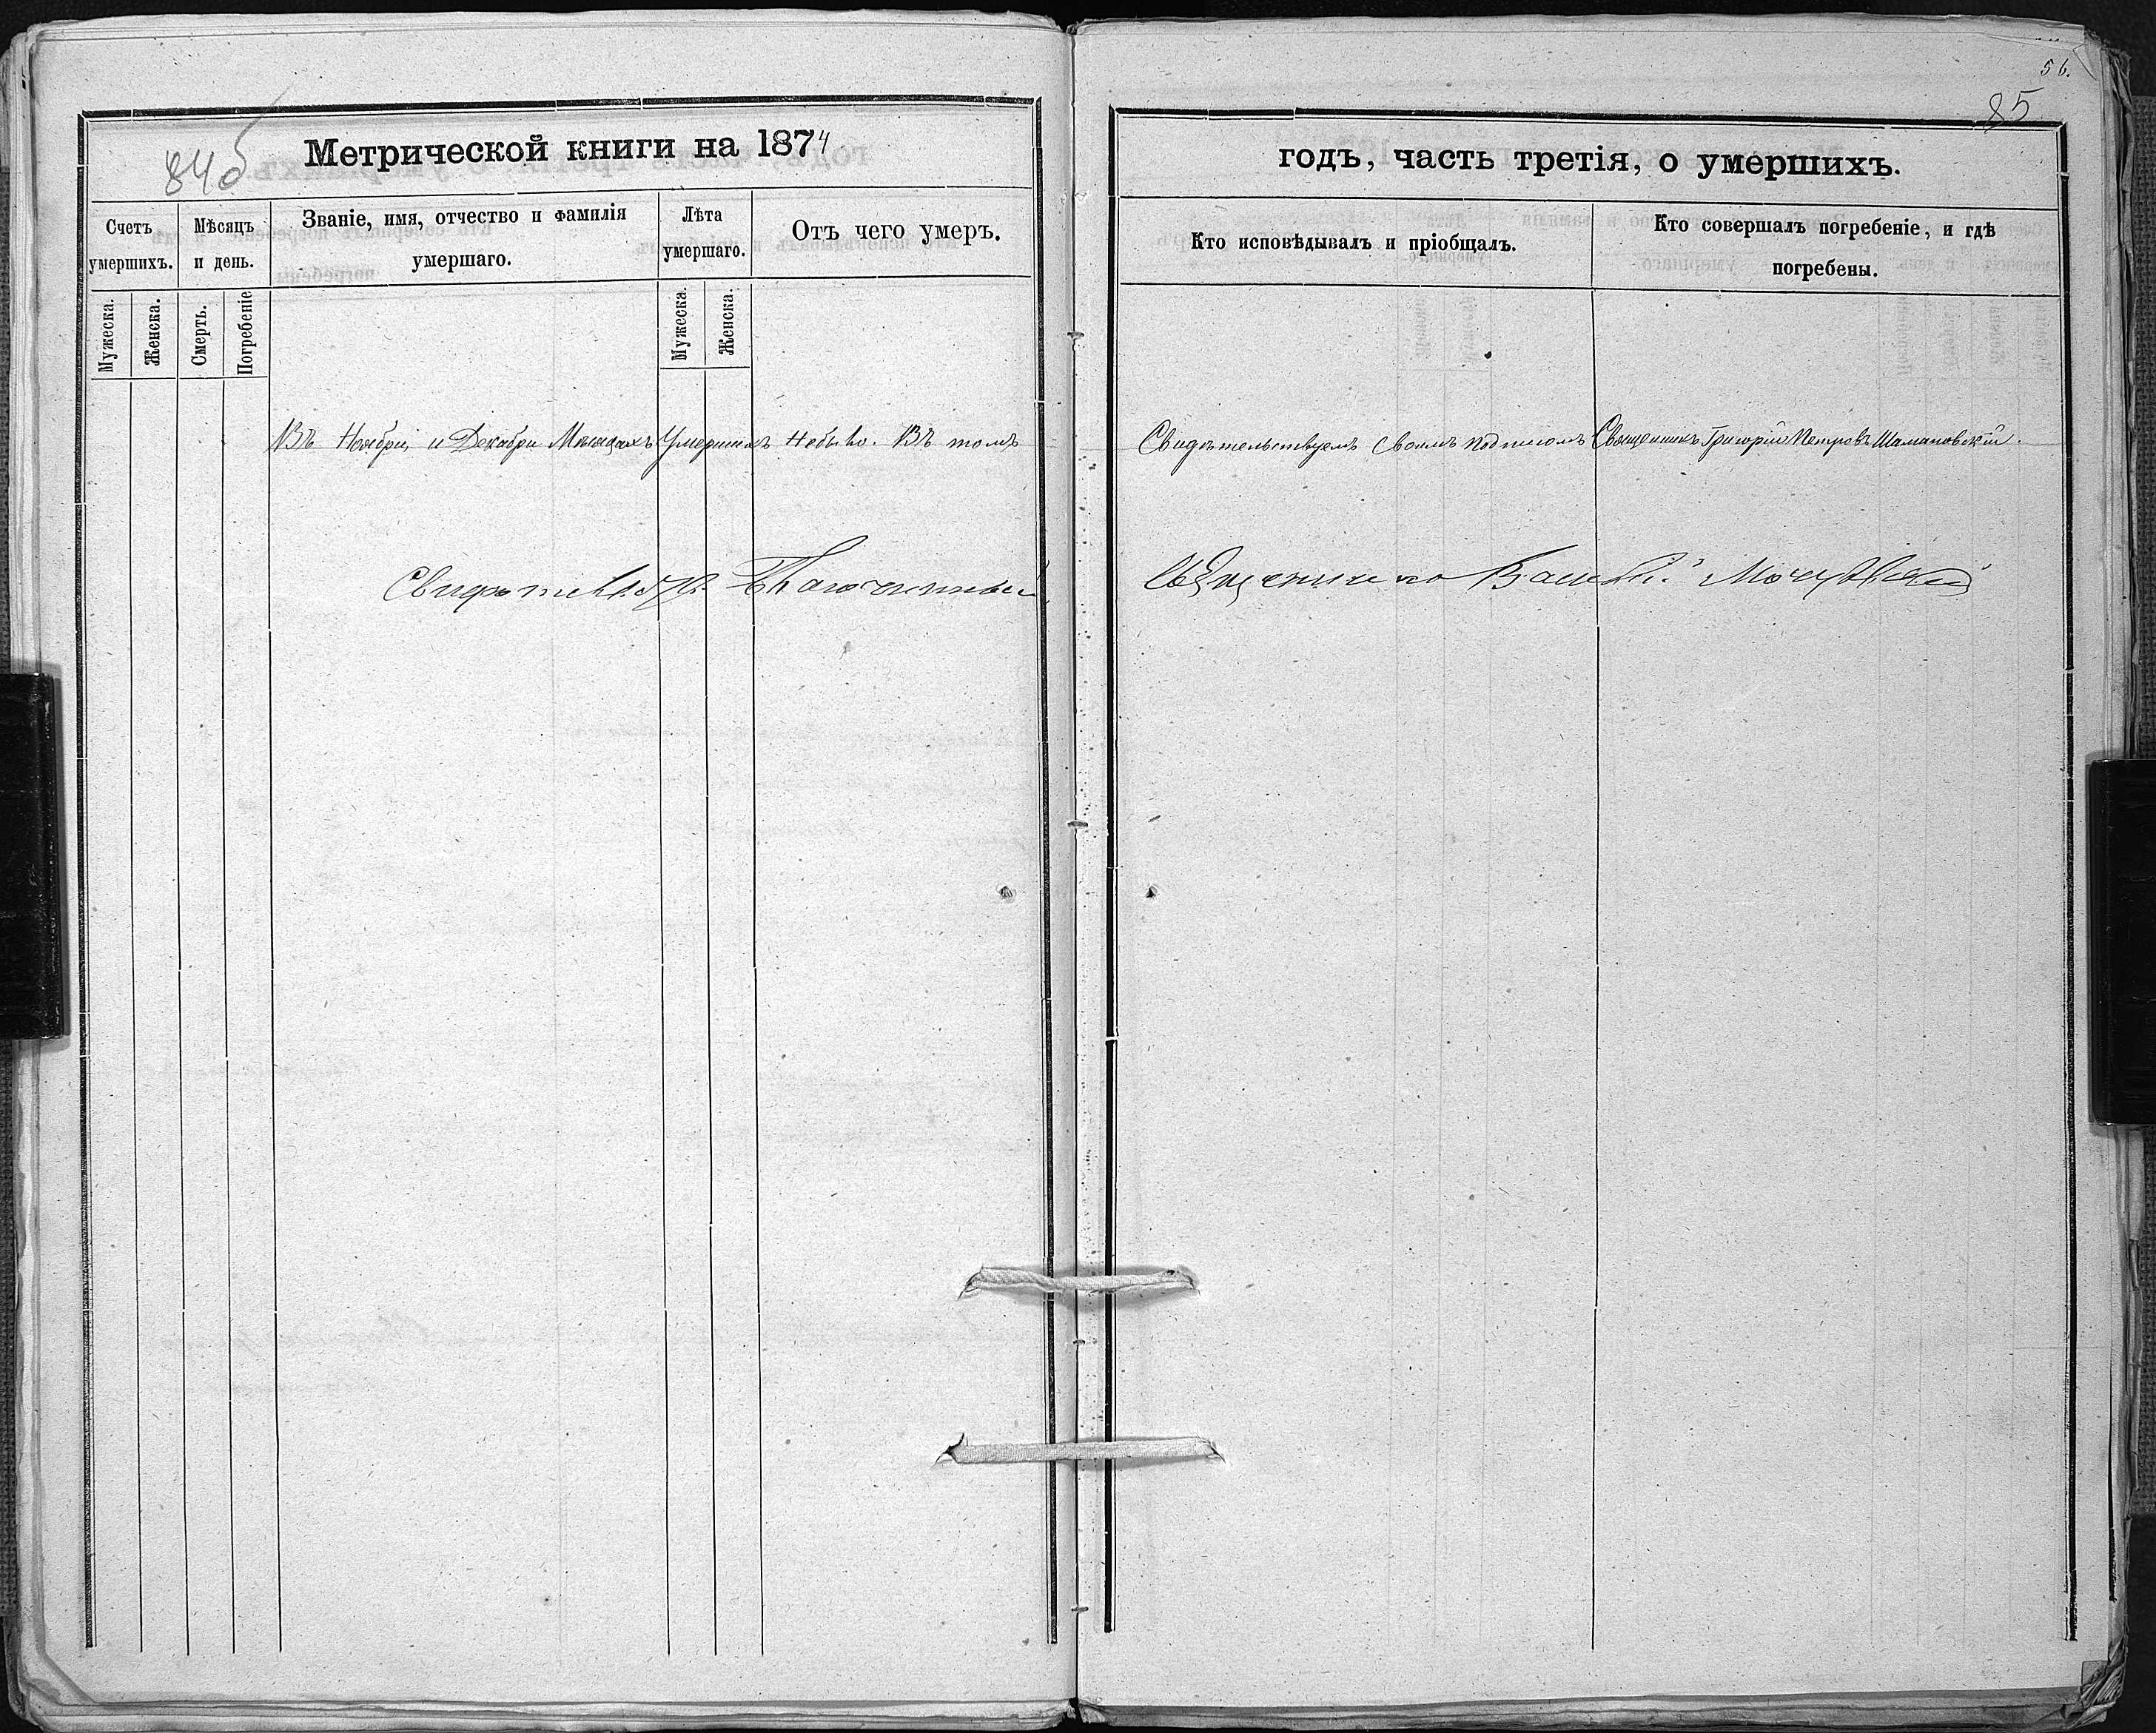 84об
Метрической книги на 1874.
Счетъ умершихъ.
Мѣсяцъ и день.
Званіе, имя, отчество и фамилія умершаго.
Лѣта умершаго.
Отъ чего умеръ.
Мужеска.
Женска.
Смерть.
Погребеніе
Мужеска.
Женска.
Въ Ноябрѣ и Декабрѣ Месяцахъ Умершихъ Небыло. Въ томъ
56.
85
годъ, часть третія, о умершихъ.
Кто исповѣдывалъ и пріобщалъ.
Кто совершалъ погребеніе, и гдѣ погребены.
Свидѣтельствуемъ Своимъ подписомъ Священникъ Григорій Петровъ Шамановскій.
Благочинный
Священникъ